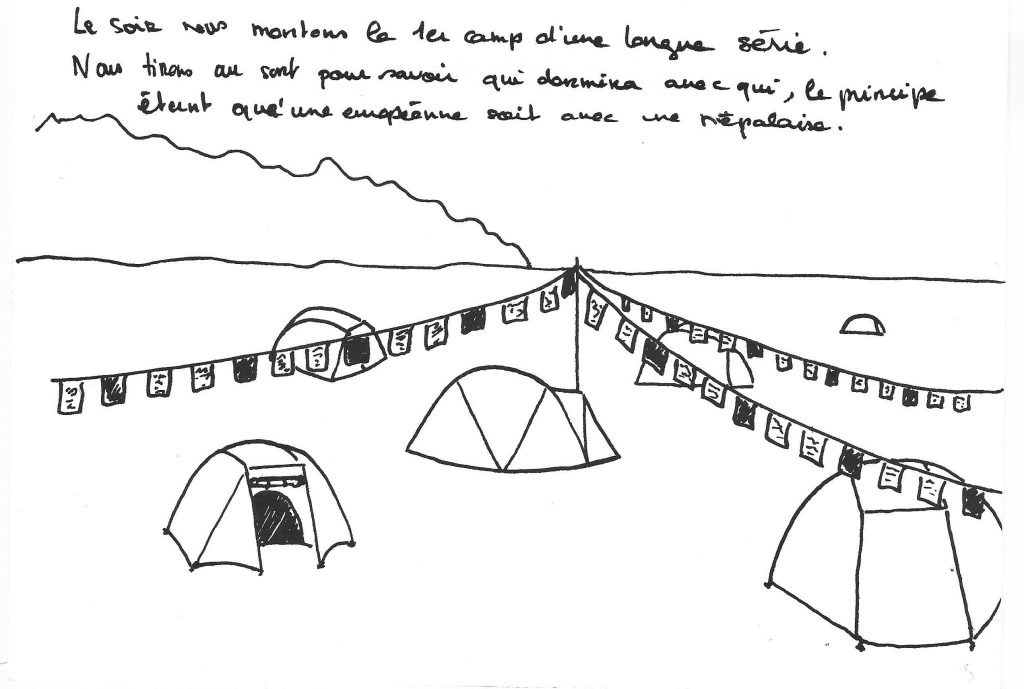 Le soir nous montons le 1er camp d'une longue série.
Nous tirons au sort pour savoir qui dormira avec qui, le principe
étant qu'une européenne soit avec une népalaise.